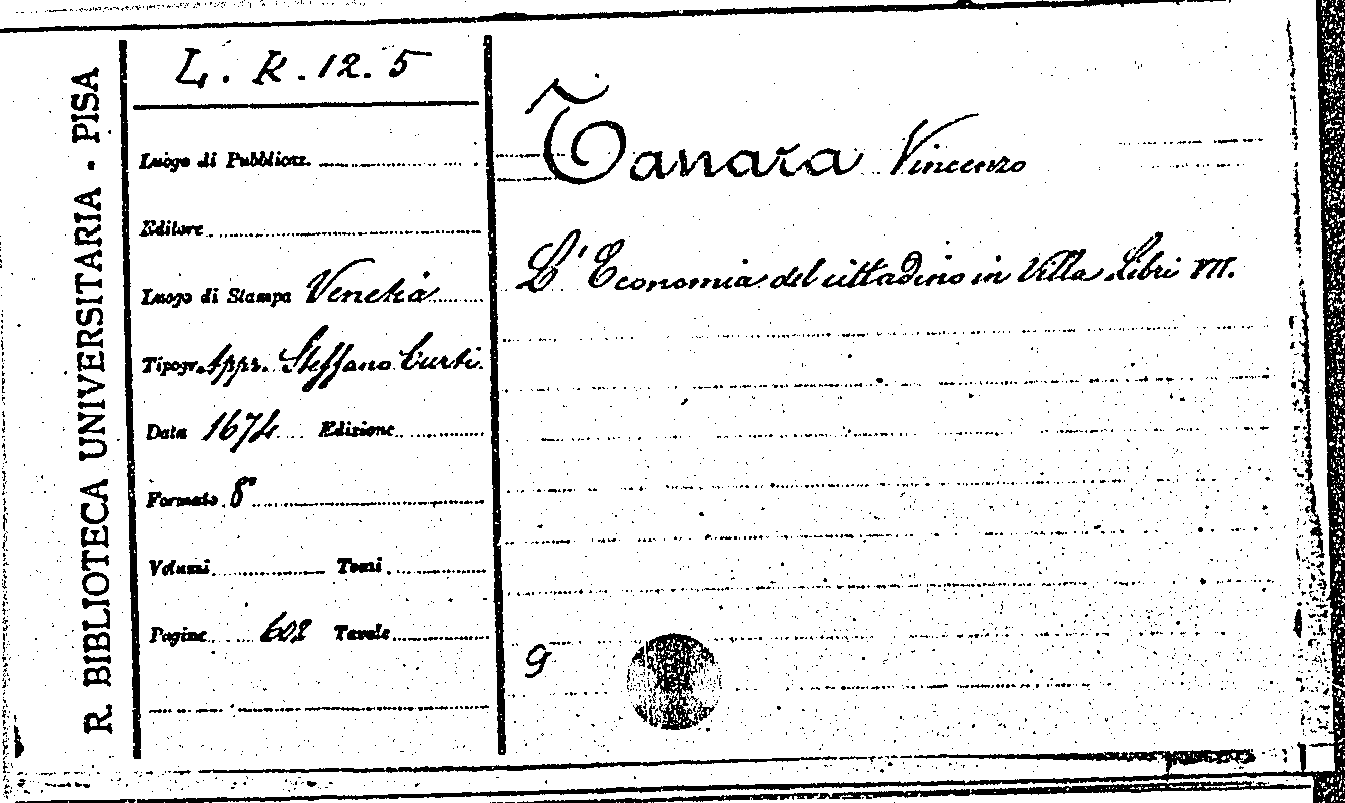 R. BIBLIOTECA UNIVERSITARIA - PISA
L. R. 12. 5
Luogo di Pubblicaz.
Editore
Luogo di Stampa Venetia
Tipogr. Appr. Steffano Curti.
Data 1674 Edizione
Formato 8°
Volumi Tomi
Pagine 602 Tavole
Tanara Vincenzo
L'Economia del cittadino in Villa Libri VII.
g